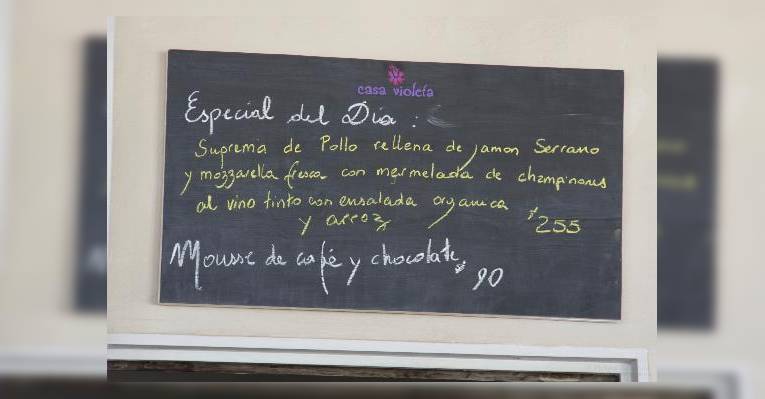 casa violeta
Especial del Dia :
Suprema de Pollo rellena de jamon Serrano
y mozzarella fresca con mermelada de champinones
al vino tinto con ensalada organica
y arroz $255
Mousse de café y chocolate $90